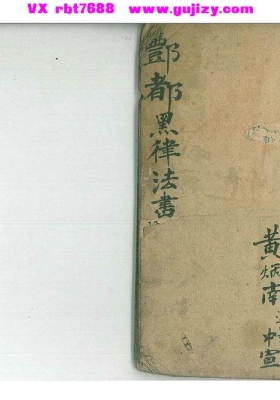 VX rbt7688 www.gujizy.com
酆都黑律法書
黃炳南
中宣